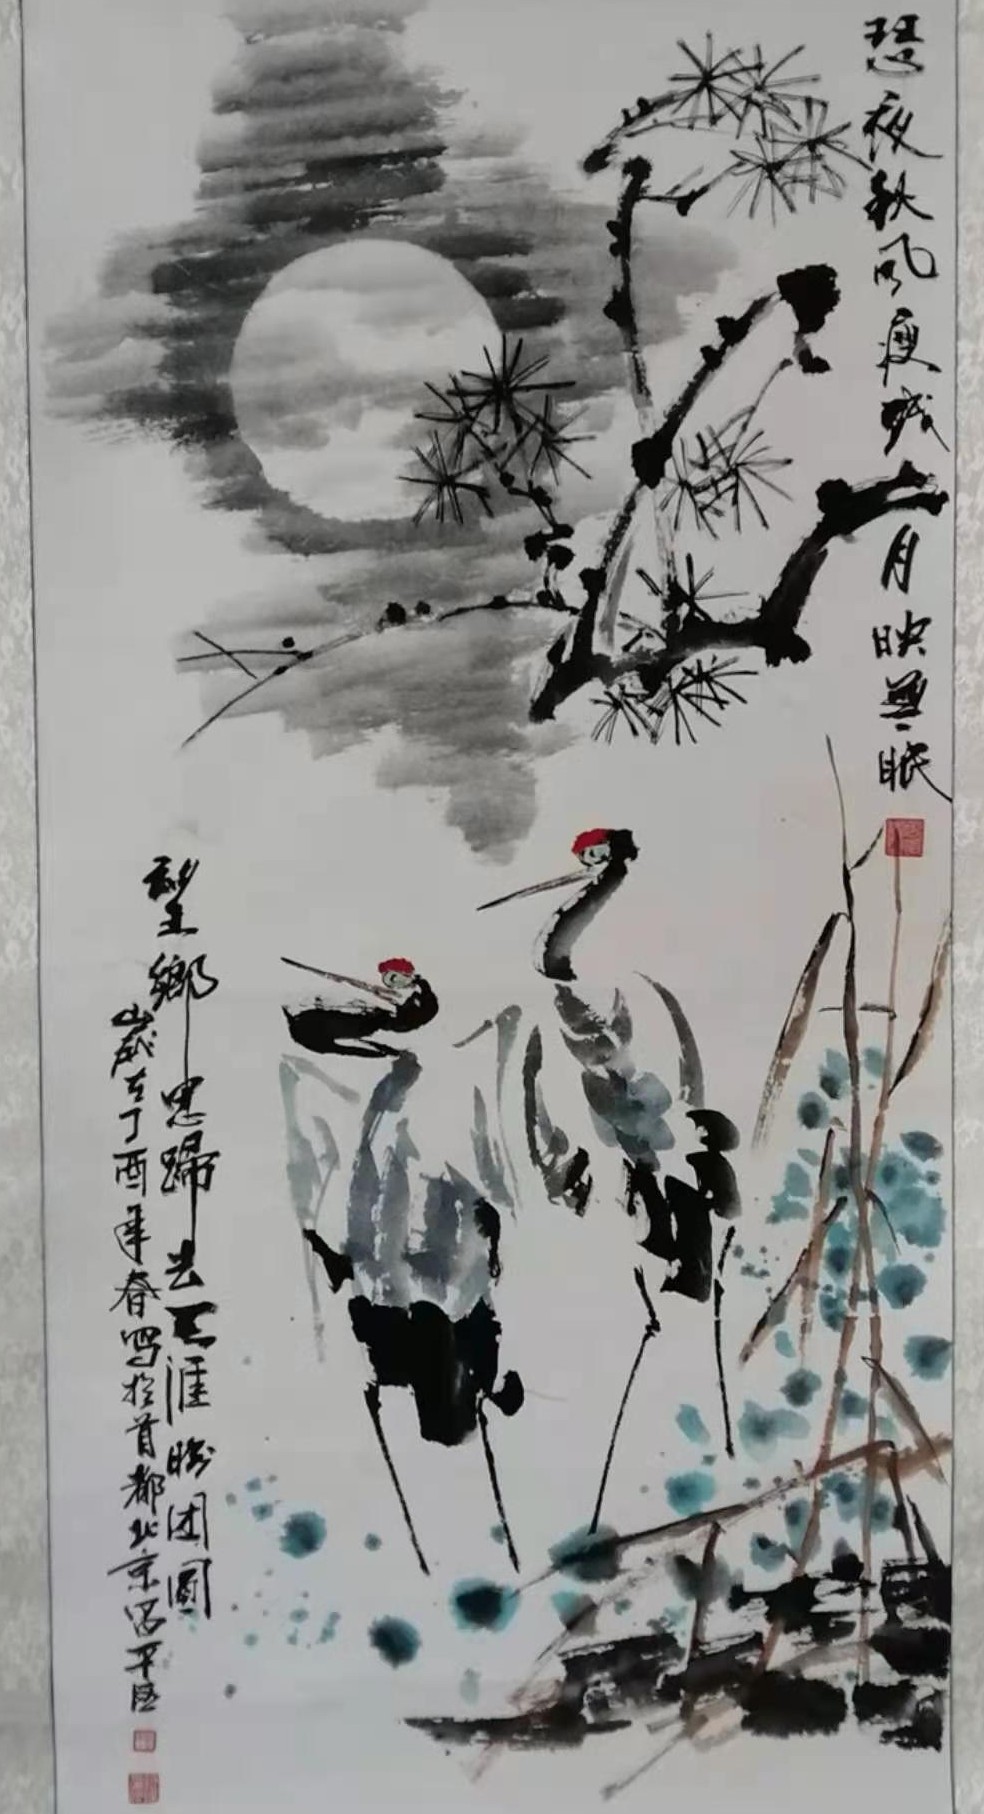 瑟夜秋风瘦残月映無眠
望鄉思歸去天涯盼团圓
歲在丁酉年春写於首都北京昌平区